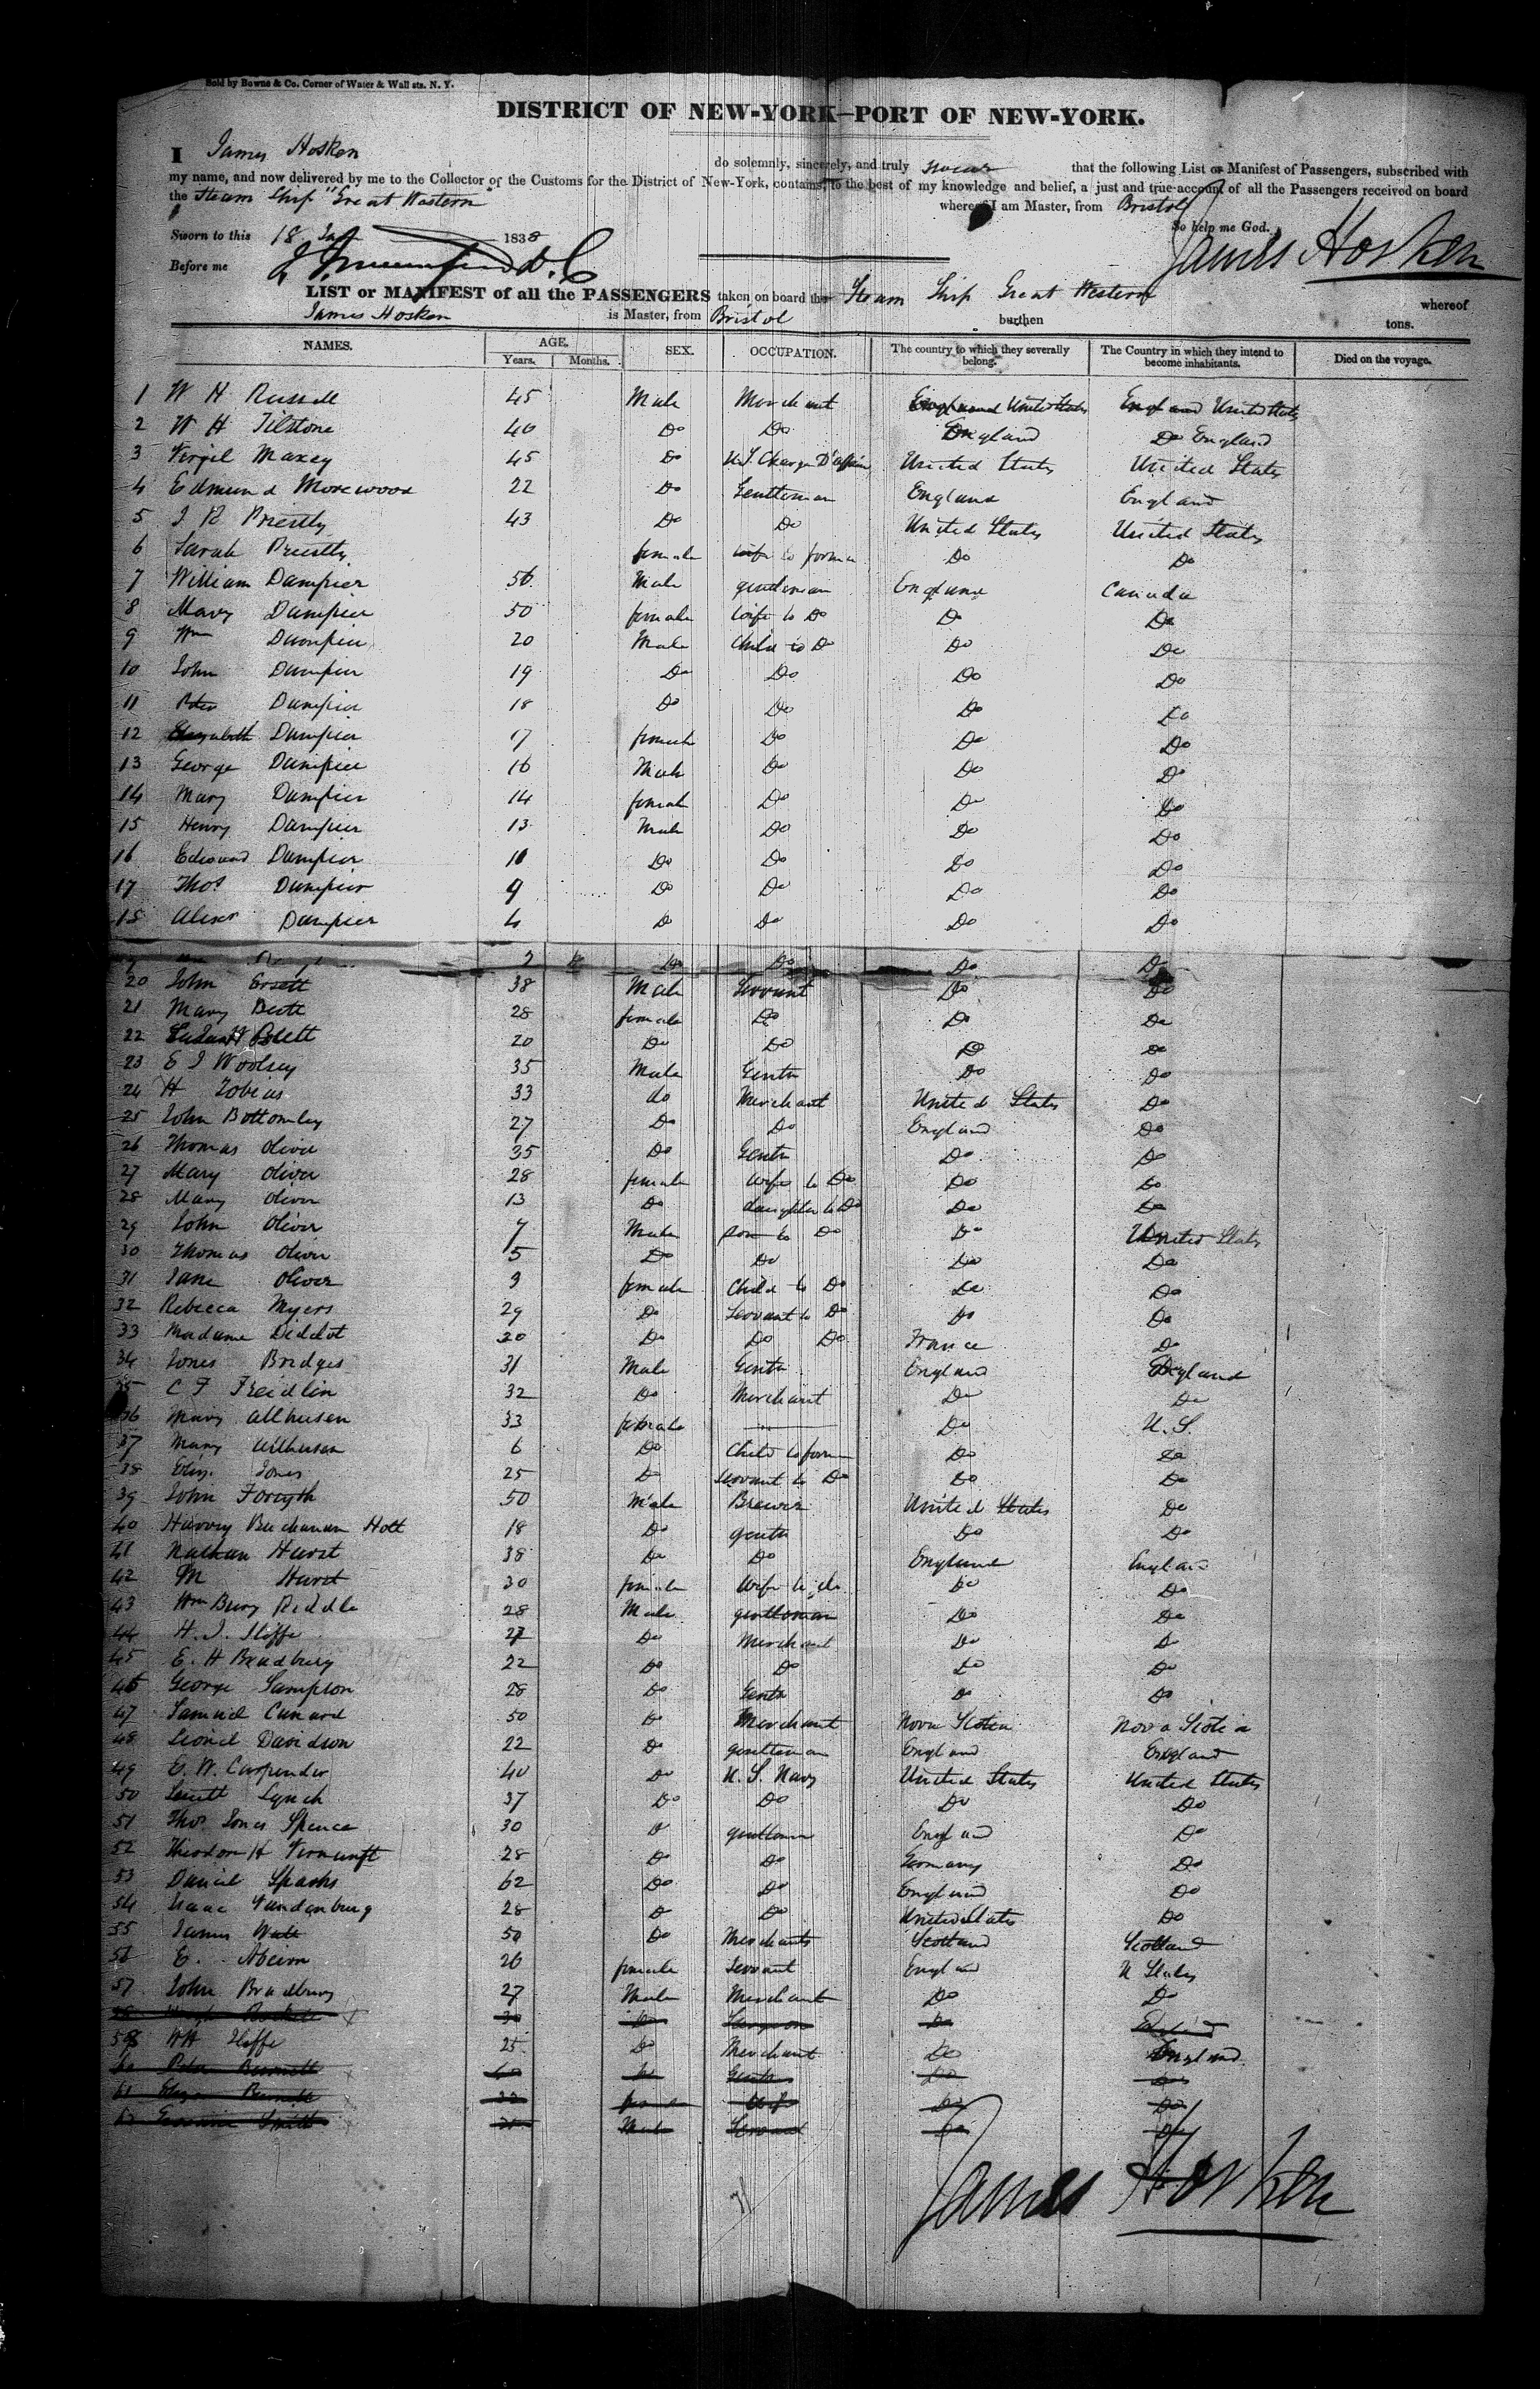 Sold by Bowne & Co. Corner of Water & Wall sts. N. Y.
DISTRICT OF NEW-YORK—PORT OF NEW-YORK.
I James Hosken do solemnly, sincerely, and truly swear that the following List or Manifest of Passengers, subscribed with
my name, and now delivered by me to the Collector of the Customs for the District of New-York, contains, to the best of my knowledge and belief, a just and true account of all the Passengers received on board
the Steam Ship "Great Western" whereof I am Master, from Bristol
So help me God.
Sworn to this 18 1838
James Hosken
Before me D. C
LIST or MANIFEST of all the PASSENGERS taken on board the Steam Ship Great Western whereof
James Hosken is Master, from Bristol burthen tons.
NAMES. AGE. SEX. OCCUPATION. The country to which they severally belong. The Country in which they intend to become inhabitants. Died on the voyage.
Years. Months.
1 W H Russell 45 Male Merchant England United States England United States
2 W H Tilstone 40 Do Do England Do England
3 Virgil Maxcy 45 Do U.S. Charge D'affair United States United States
4 Edmund Morewood 22 Do Gentleman England England
5 J Priestly 43 Do Do United States United States
6 Sarah Priestly female wife to former Do Do
7 William Dampier 56 Male gentleman England Canada
8 Mary Dampier 50 female wife to Do Do Do
9 Wm Dampier 20 Male Child to Do Do Do
10 John Dampier 19 Do Do Do Do
11 Dampier 18 Do Do Do Do
12 Elizabeth Dampier 17 female Do Do Do
13 George Dampier 16 Male Do Do Do
14 Mary Dampier 14 female Do Do Do
15 Henry Dampier 13 Male Do Do Do
16 Edward Dampier 11 Do Do Do Do
17 Thos Dampier 9 Do Do Do Do
18 Alexr Dampier 4 Do Do Do Do
2 Do Do Do Do
20 John 38 Male Servant Do Do
21 Mary 28 female Do Do Do
22 20 Do Do Do Do
23 E J Woolsey 35 Male Gentn Do Do
24 H Tobias 33 do Merchant United States Do
25 John Bottomley 27 Do Do England Do
26 Thomas Oliver 35 Do Gentn Do Do
27 Mary Oliver 28 female wife to Do Do Do
28 Mary Oliver 13 Do daughter to Do Do Do
29 John Oliver 7 Male son to Do Do United States
30 Thomas Oliver 5 Do Do Do Do
31 Jane Oliver 3 female Child to Do Do Do
32 Rebecca Myers 29 Do Servant to Do Do Do
33 Madame 20 Do Do Do France Do
34 Jones Bridges 31 Male Gentn England England
35 C F Freidlin 32 Do Merchant Do Do
36 Mary Allhusen 33 female Do U. S.
37 Mary Allhusen 6 Do Child to form Do Do
38 Eliz. Jones 25 Do servant to Do Do Do
39 John Forsyth 50 Male Brewer United States Do
40 Harvey Buchanan Holt 18 Do gentn Do Do
41 Nathan Hurst 38 Do Do England England
42 M Hurst 30 female Wife to do Do Do
43 Wm Bury Riddle 28 Male gentleman Do Do
44 H. J. Iliffe 27 Do Merchant Do Do
45 E. H Bradbury 22 Do Do Do Do
46 George Sampson 28 Do Gentn Do Do
47 Samuel Cunard 50 Do Merchant Nova Scotia Nova Scotia
48 Lionel Davidson 22 Do gentleman England England
49 E. W. Carpender 40 Do U. S. Navy United States United States
50 Lynch 37 Do Do Do Do
51 Thos Jones Spence 30 Do gentleman England Do
52 Theodore H Vernunft 28 Do Do Germany Do
53 Daniel Sparks 62 Do Do England Do
54 Isaac Vandenburg 28 Do Do United States Do
55 James 50 Do Merchants Scotland Scotland
56 E. 26 female Servant England U States
57 John Bradbury 27 Male Merchant Do Do
58 30 Do Surgeon Do England
59 WH Iliffe 25 Do Merchant Do England
60 Peter Burnett Do Gentn Do Do
61 Eliza Burnett female Wife Do Do
62 Smith Male Servant Do Do
James Hosken